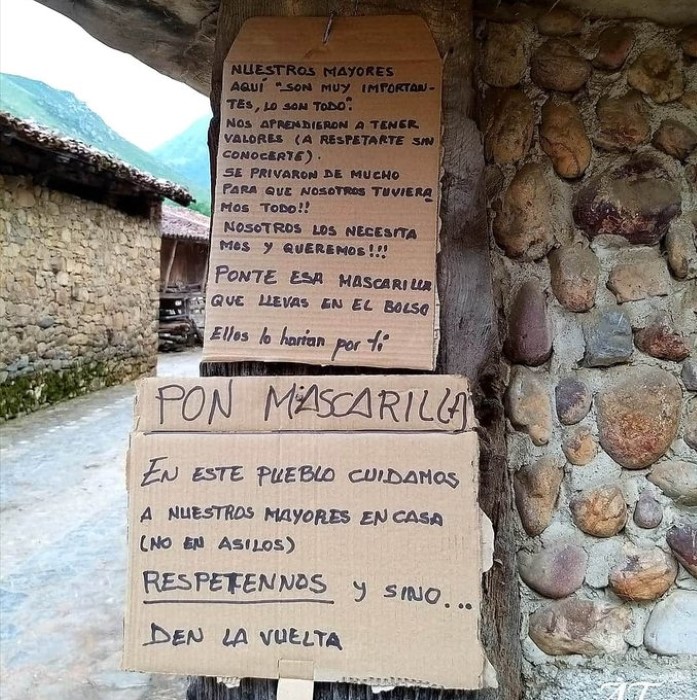 NUESTROS MAYORES
AQUÍ "SON MUY IMPORTAN-
TES, LO SON TODO".
NOS APRENDIERON A TENER
VALORES (A RESPETARTE SIN
CONOCERTE).
SE PRIVARON DE MUCHO
PARA QUE NOSOTROS TUVIERA
MOS TODO!!
NOSOTROS LOS NECESITA
MOS Y QUEREMOS!!!
PONTE ESA MASCARILLA
QUE LLEVAS EN EL BOLSO
Ellos lo harían por ti
PON MASCARILLA
EN ESTE PUEBLO CUIDAMOS
A NUESTROS MAYORES EN CASA
(NO EN ASILOS)
RESPETENNOS Y SINO...
DEN LA VUELTA